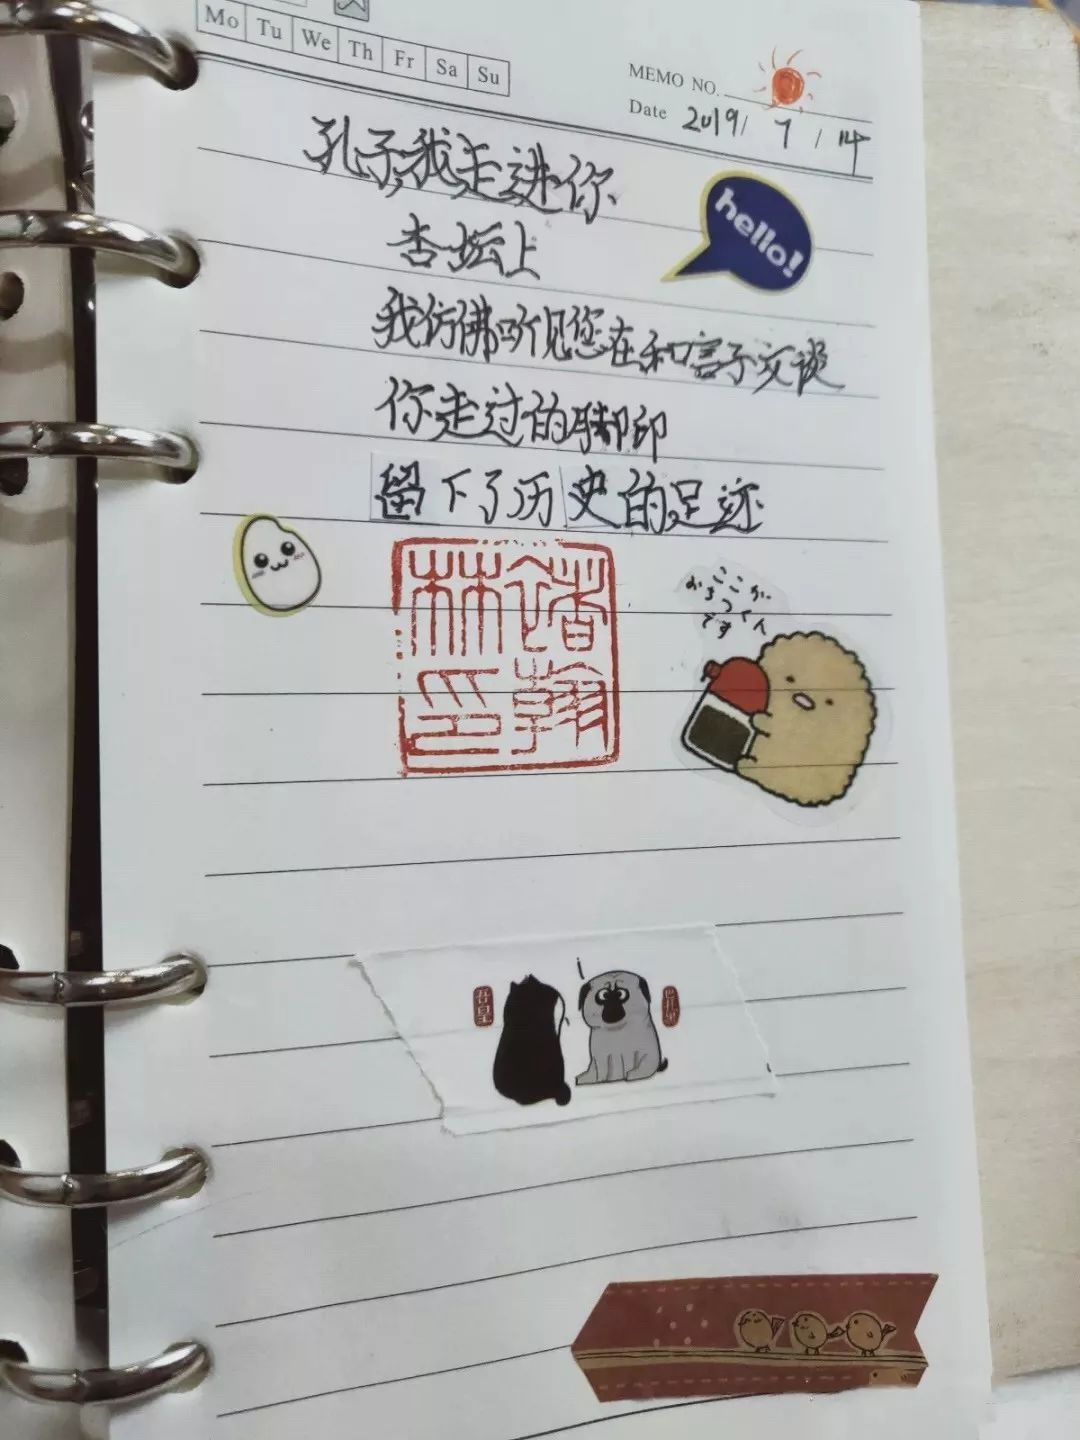 Mo Tu We Th Fr Sa Su
MEMO NO.
Date 2019/7/14
孔子,我走进你
hello!
杏坛上
我仿佛听见您在和言子交谈
你走过的脚印
留下了历史的足迹
ここが
おちつくん
です
吾皇
巴扎黑